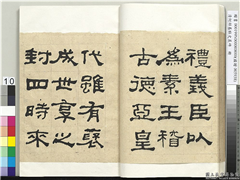 禮義臣以
為素王稽
古德亞皇
代雖有褒
成世享之
封四時來
10